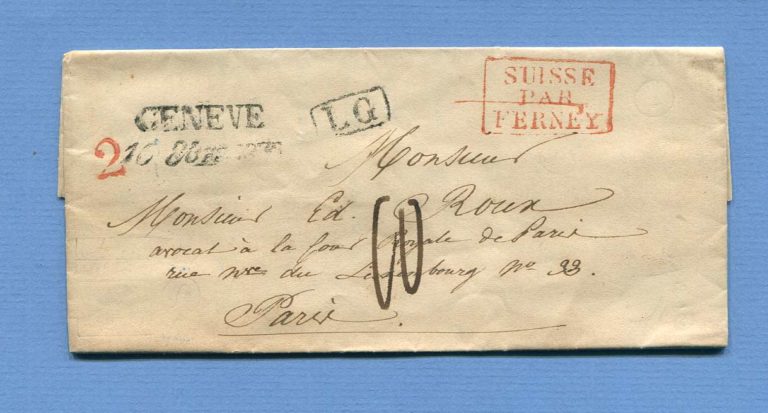 GENEVE
L.G
SUISSE
PAR
FERNEY
2
16
Monsieur
Monsieur Ed. Roux
avocat à la Cour Royale de Paris
rue nve du Luxembourg no 33.
Paris